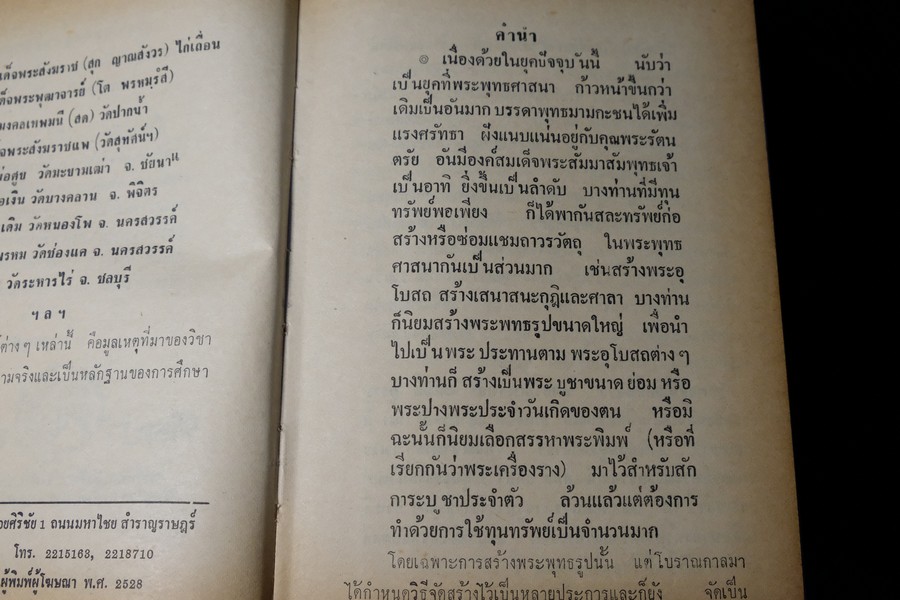 ด็จพระสังฆราช (สุก ญาณสังวร) ไก่เถื่อน
ด็จพระพุฒาจารย์ (โต พรหมรังสี)
มงคลเทพมุนี (สด) วัดปากน้ำ
จพระสังฆราชแพ (วัดสุทัศน์ฯ)
วัดมะขามเฒ่า จ. ชัยนาท
อเงิน วัดบางคลาน จ. พิจิตร
เดิม วัดหนองโพ จ. นครสวรรค์
พรหม วัดช่องแค จ. นครสวรรค์
วัดระหารไร่ จ. ชลบุรี
ฯ ล ฯ
ต่าง ๆ เหล่านี้ คือมูลเหตุที่มาของวิชา
ามจริงและเป็นหลักฐานของการศึกษา
อยศิริชัย 1 ถนนมหาไชย สำราญราษฎร์
โทร. 2215163, 2218710
ผู้พิมพ์ผู้โฆษณา พ.ศ. 2528
คำนำ
๏ เนื่องด้วยในยุคปัจจุบันนี้ นับว่า
เป็นยุคที่พระพุทธศาสนา ก้าวหน้าขึ้นกว่า
เดิมเป็นอันมาก บรรดาพุทธมามกะชนได้เพิ่ม
แรงศรัทธา ฝังแนบแน่นอยู่กับคุณพระรัตน
ตรัย อันมีองค์สมเด็จพระสัมมาสัมพุทธเจ้า
เป็นอาทิ ยิ่งขึ้นเป็นลำดับ บางท่านที่มีทุน
ทรัพย์พอเพียง ก็ได้พากันสละทรัพย์ก่อ
สร้างหรือซ่อมแซมถาวรวัตถุ ในพระพุทธ
ศาสนากันเป็นส่วนมาก เช่นสร้างพระอุ
โบสถ สร้างเสนาสนะกุฎิและศาลา บางท่าน
ก็นิยมสร้างพระพทธรูปขนาดใหญ่ เพื่อนำ
ไปเป็นพระ ประทานตาม พระอุโบสถต่าง ๆ
บางท่านก็ สร้างเป็นพระ บูชาขนาด ย่อม หรือ
พระปางพระประจำวันเกิดของตน หรือมิ
ฉะนั้นก็นิยมเลือกสรรหาพระพิมพ์ (หรือที่
เรียกกันว่าพระเครื่องราง) มาไว้สำหรับสัก
การะบูชาประจำตัว ล้วนแล้วแต่ต้องการ
ทำด้วยการใช้ทุนทรัพย์เป็นจำนวนมาก
โดยเฉพาะการสร้างพระพุทธรูปนั้น แต่โบราณกาลมา
ได้กำหนดวิธีจัดสร้างไว้เป็นหลายประการและก็ยัง จัดเป็น